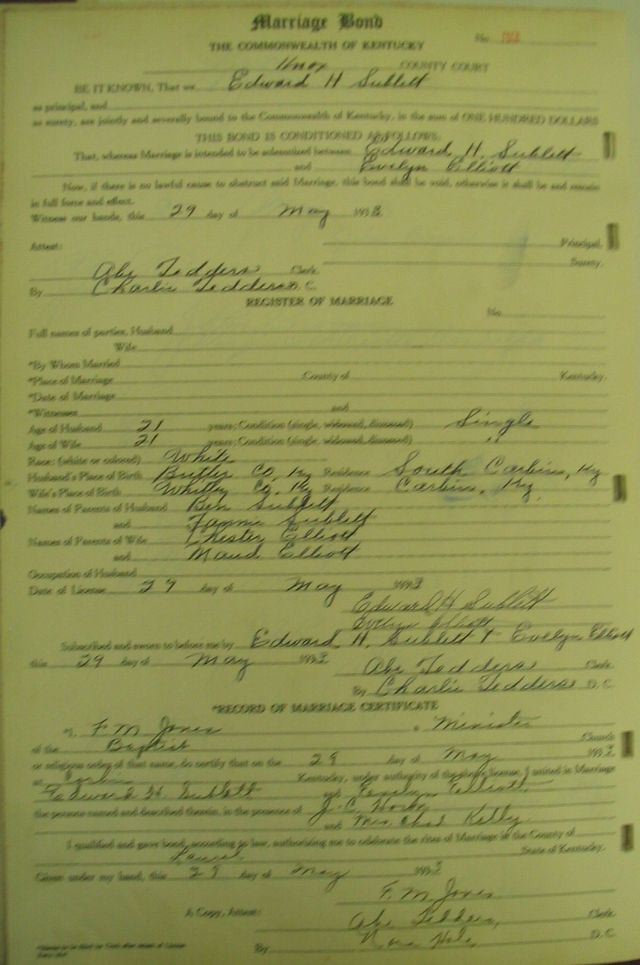 Marriage Bond
No.
THE COMMONWEALTH OF KENTUCKY
Knox COUNTY COURT
BE IT KNOWN, That we Edward H Sublett
as principal, and
as surety, are jointly and severally bound to the Commonwealth of Kentucky, in the sum of ONE HUNDRED DOLLARS
THIS BOND IS CONDITIONED AS FOLLOWS:
That, whereas Marriage is intended to be solemnized between Edward H. Sublett
and Evelyn Elliott
Now, if there is no lawful cause to obstruct said Marriage, this bond shall be void, otherwise it shall be and remain
in full force and effect.
Witness our hands, this 29 day of May 193
Principal,
Attest:
Surety.
Abe Tedders Clerk
By Charlie Tedders D. C.
REGISTER OF MARRIAGE
No.
Full names of parties, Husband
Wife
*By Whom Married
*Place of Marriage County of Kentucky.
*Date of Marriage
*Witnesses and
Age of Husband 21 years; Condition (single, widowed, divorced) Single
Age of Wife 21 years; Condition (single, widowed, divorced) "
Race: (white or colored) White
Husband's Place of Birth Butler Co, Ky Residence South Corbin, Ky
Wife's Place of Birth Whitley Co, Ky Residence Corbin, Ky.
Names of Parents of Husband Ben Sublett
and Fannie Sublett
Names of Parents of Wife Chester Elliott
and Maud Elliott
Occupation of Husband
Date of License 29 day of May 1933
Edward H Sublett
Evelyn Elliott
Subscribed and sworn to before me by Edward H. Sublett + Evelyn Elliott
this 29 day of May 1933
Abe Tedders Clerk
By Charlie Tedders D. C.
*RECORD OF MARRIAGE CERTIFICATE
I, F. M. Jones a Minister
of the Baptist Church
or religious order of that name, do certify that on the 29 day of May 193
at Corbin Kentucky, under authority of the above license, I united in Marriage
Edward H. Sublett and Evelyn Elliott
the persons named and described therein, in the presence of J. C.
and Mrs. Kelly
I qualified and gave bond, according to law, authorizing me to celebrate the rites of Marriage in the County of
Laurel State of Kentucky.
Given under my hand, this 29 day of May 1933
F. M Jones
A Copy, Attest: Abe Tedders, Clerk
By D. C.